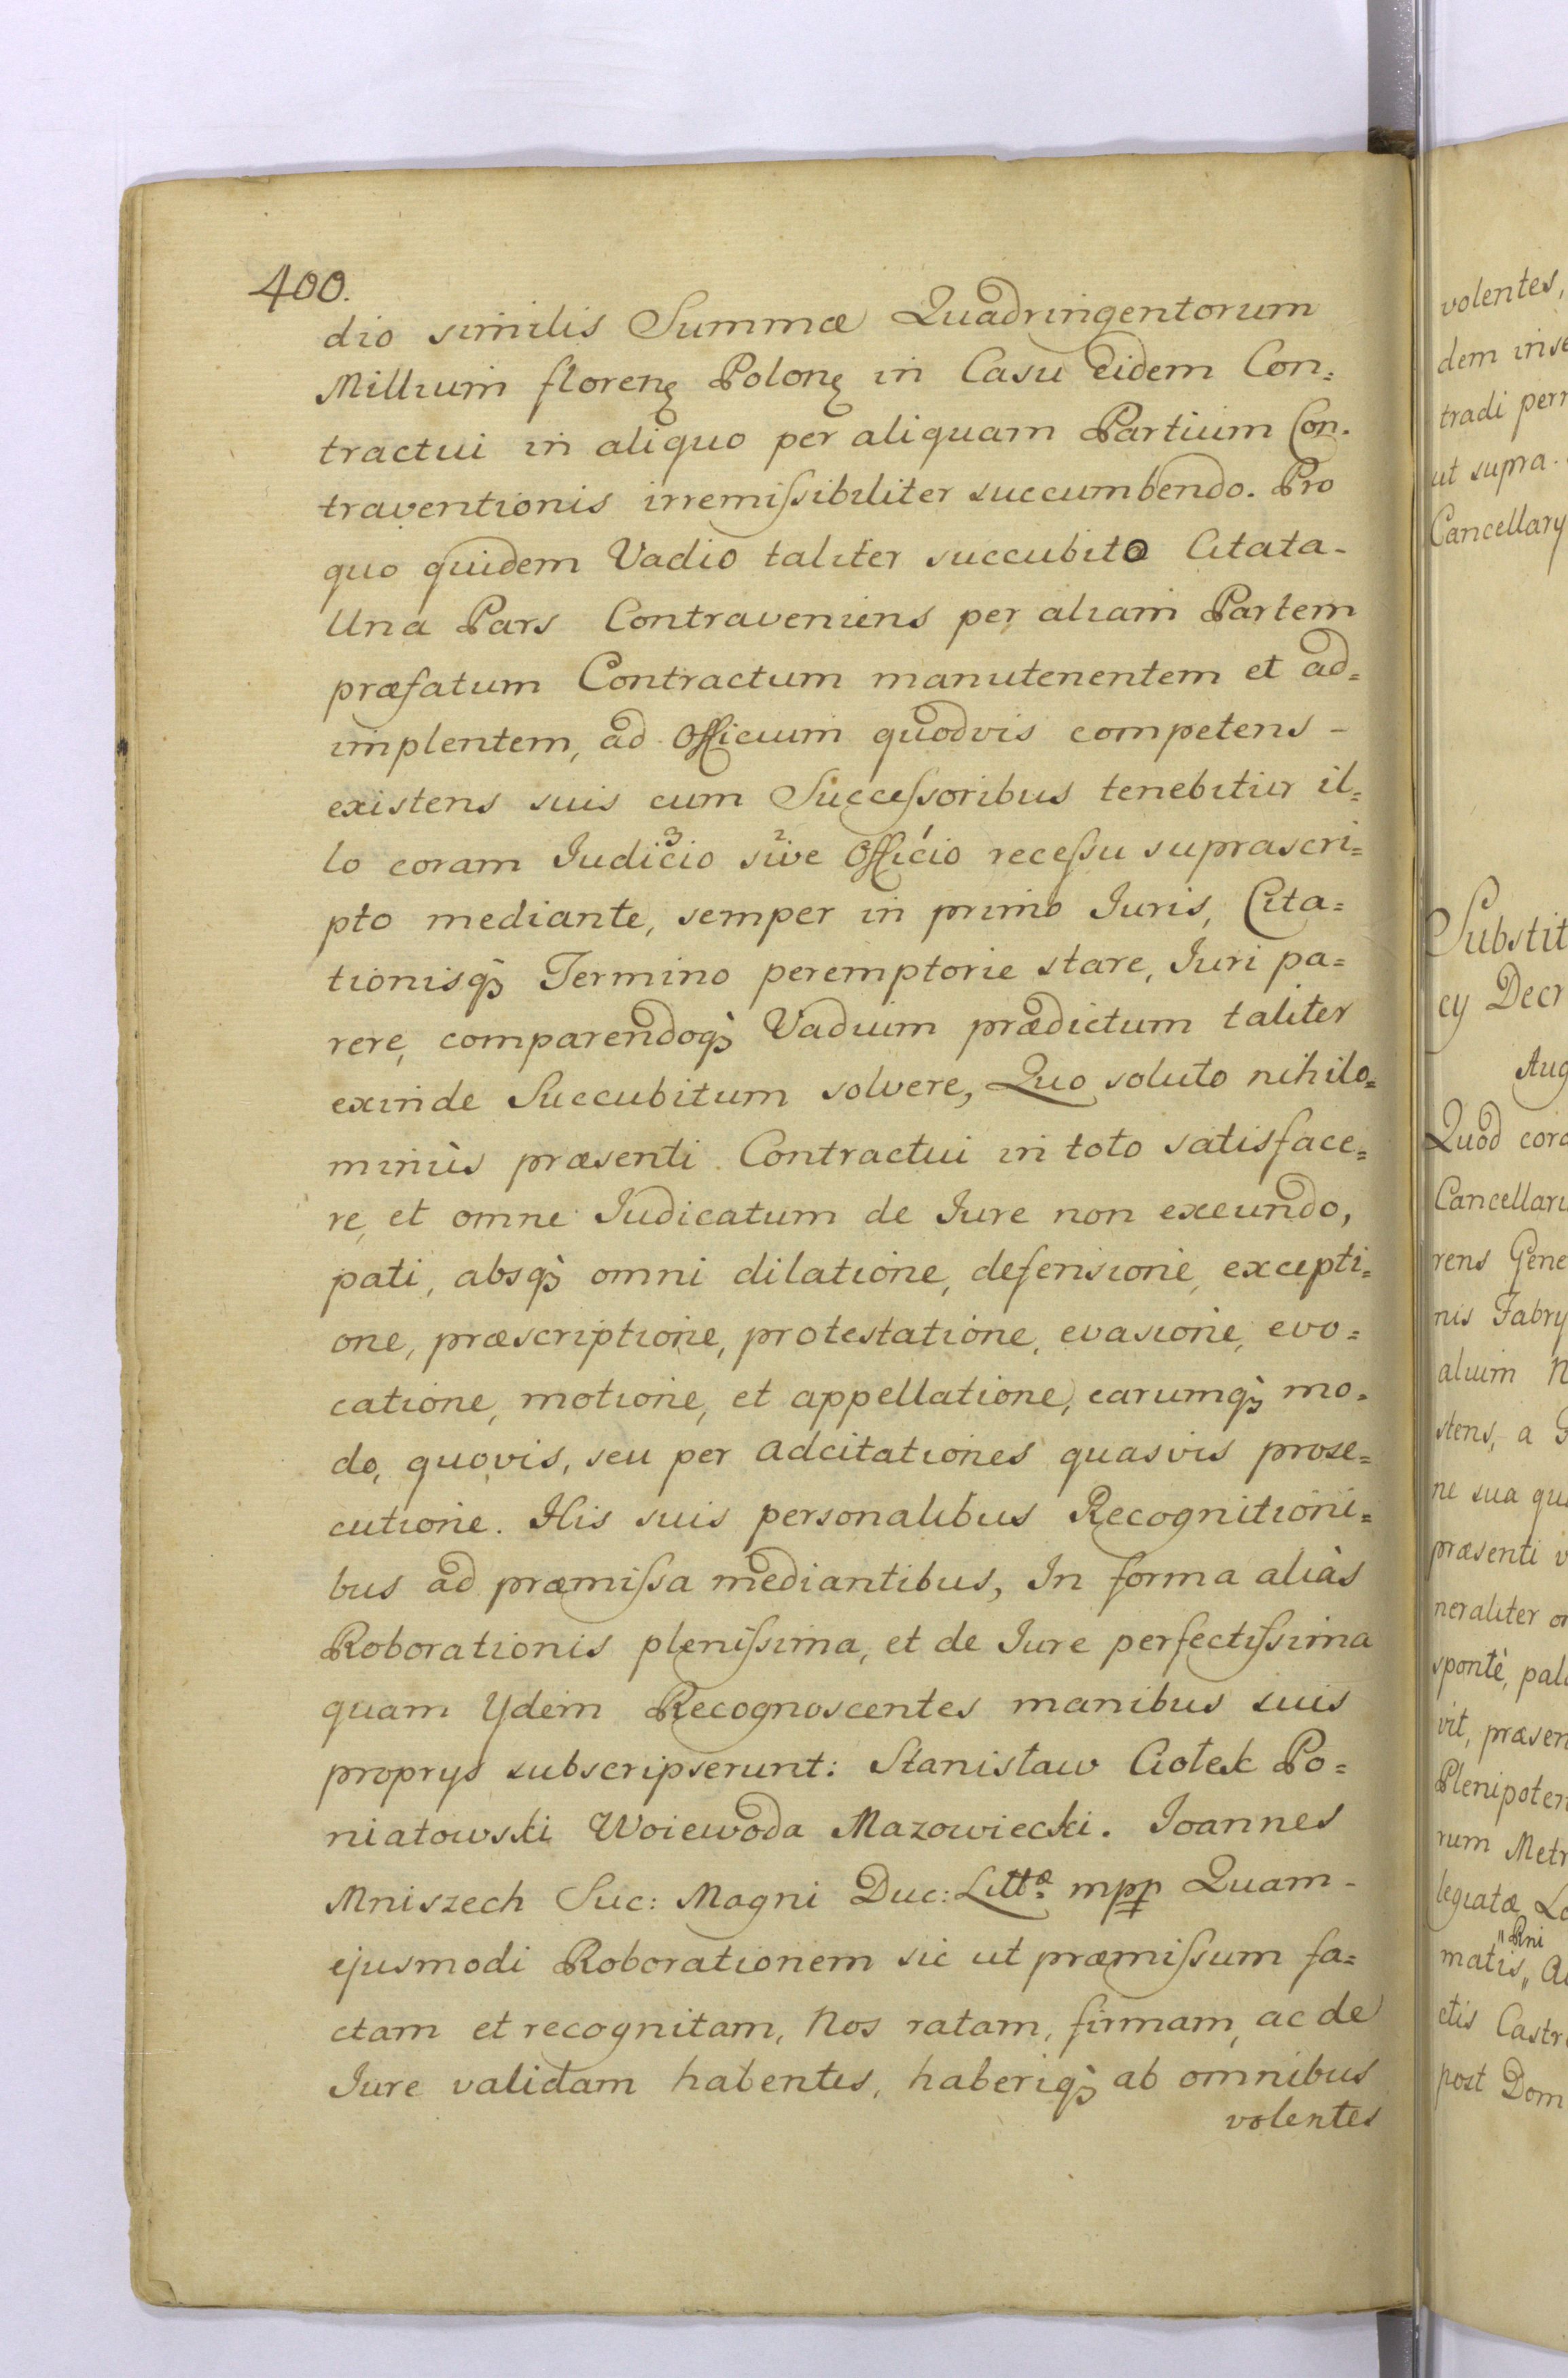 400.
dio similis Summæ Quadringentorum
Millium florenę Polonę in Casu eidem Con=
tractui in aliquo per aliquam Partium Con.
traventionis irremiſsibiliter succumbendo. Pro
quo quidem Vadio taliter succubito Citata-
Una Pars Contraveniens per aliam Partem
præfatum Contractum manutenentem et ad=
implentem, ad Officium quodvis competens -
existens suis cum Succeſsoribus tenebitur il=
lo coram Iudicio³ sive² Officio¹ receſsu suprascri=
pto mediante, semper in primo Iuris, Cita=
tionisqꝫ Termino peremptorie stare, Iuri pa=
rere, comparendoqꝫ Vadium prædictum taliter
exinde Succubitum solvere, Quo soluto nihilo=
minùs præsenti Contractui in toto satisface=
re, et omne Iudicatum de Iure non exeundo,
pati, absqꝫ omni dilatione, defensione, excepti=
one, præscriptione, protestatione, evasione, evo=
catione, motione, et appellatione, earumqꝫ mo=
do, quovis, seu per adcitationes quasvis prose=
cutione. His suis personalibus Recognitioni=
bus ad præmiſsa mediantibus, In forma aliàs
Roborationis pleniſsima, et de Iure perfectiſsima
quam Ydem Recognoscentes manibus suis
proprys subscripserunt: Stanisław Ciołek Po=
niatowski Woiewoda Mazowiecki. Ioannes
Mniszech Suc: Magni Duc: Littæ mpp Quam-
ejusmodi Roborationem sic ut præmiſsum fa=
ctam et recognitam, Nos ratam, firmam, ac de
Iure validam habentes, haberiqꝫ ab omnibus
volentes
volentes,
dem inse
tradi per
ut supra.
Cancellary
Substit
cy Decr
Aug
Quod cor
Cancellari
rens Gene
nis Fabry
alium N
stens, a G
ne sua qu
præsenti v
neraliter o
spontè, pal
vit, præsen
Plenipoten
rum Metr
legiatæ Lo
"Rni
matis,, A
ctis Castr
post Dom